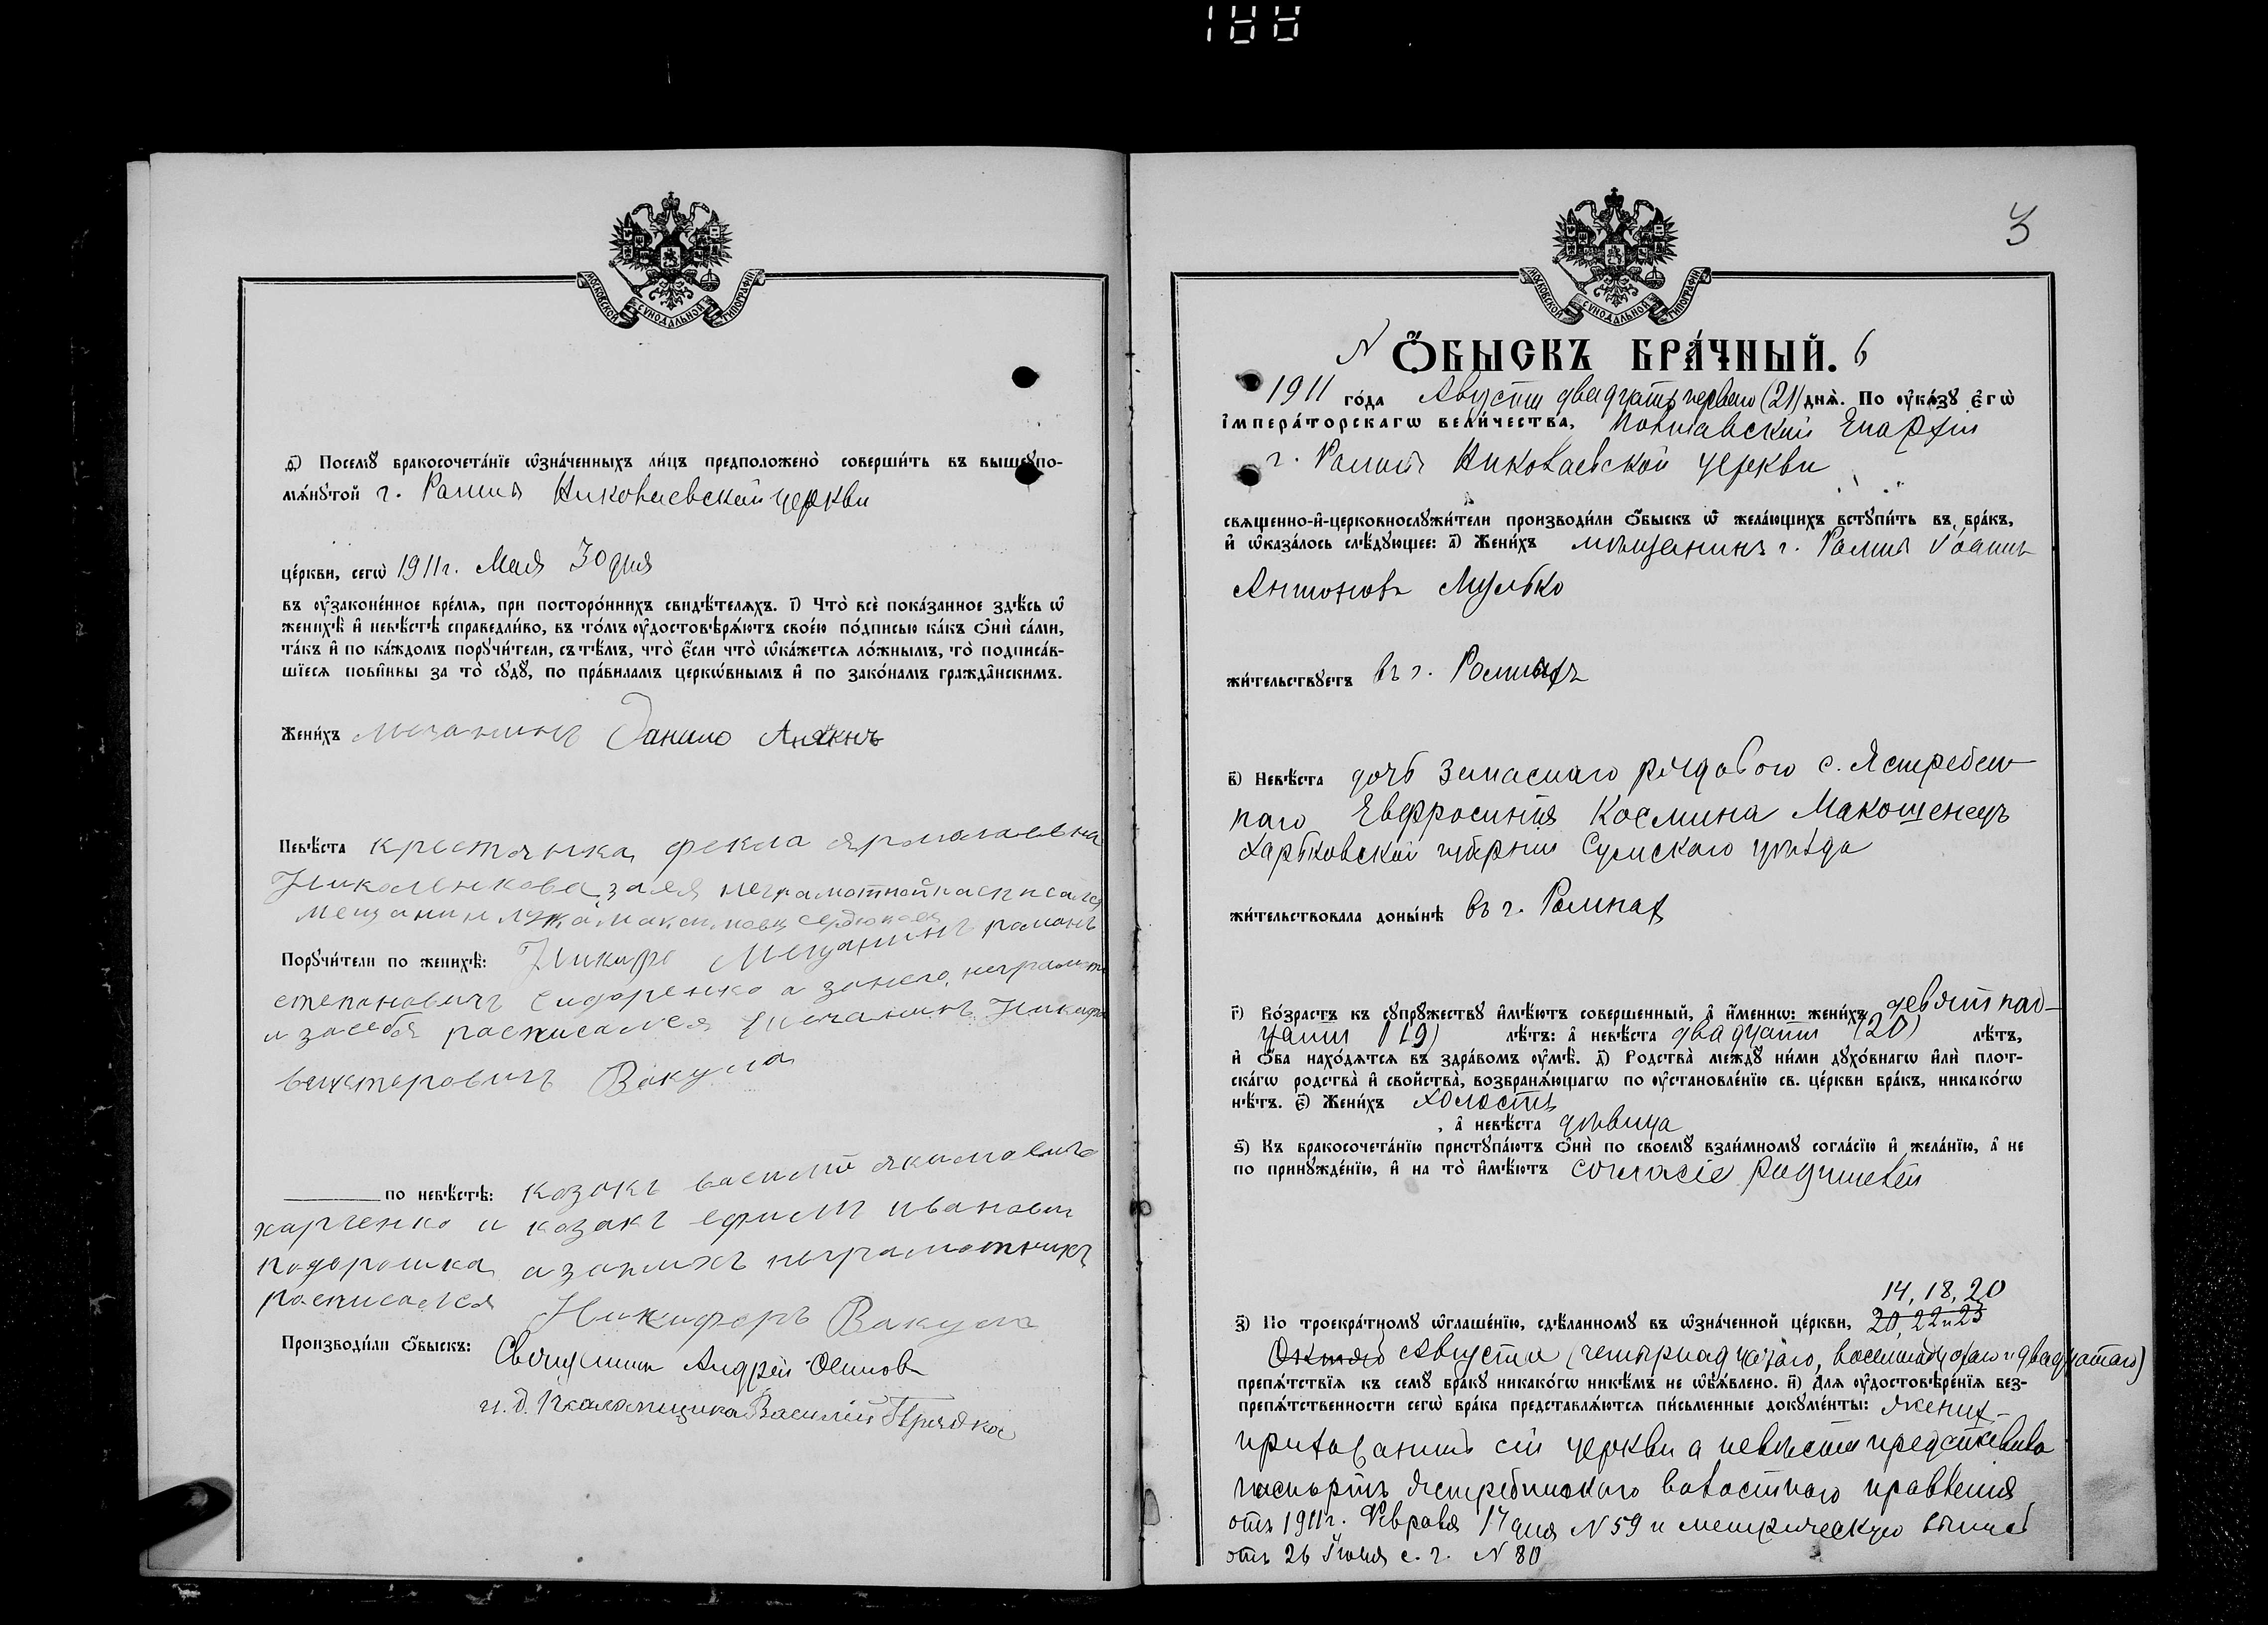 188
МОСКОВСКОЙ СѴНОДАЛЬНОЙ ТИПОГРАФІИ
д҃і) Посемꙋ̀ бракосочета́нїе ѡ҆зна́ченныхъ ли́цъ предположено̀ соверши́ть въ вышеупо-
мѧ́нꙋтой г. Ромна Николаевской церкви
це́ркви, сегѡ̀ 1911 г. Мая 30 дня
въ ᲂу҆законе́нное вре́мѧ, при посторо́ннихъ свидѣ́телѧхъ. і҃) Что̀ всѐ пока́занное здѣ́сь ѡ҆
женихѣ̀ и҆ невѣ́стѣ справедли́во, въ то́мъ ᲂу҆достовѣрѧ́ютъ свое́ю по́дписью ка́къ ѻ҆нѝ са́ми,
та́къ и҆ по ка́ждомъ порꙋчи́тели, съ тѣ́мъ, что̀ є҆́сли что̀ ѡ҆ка́жетсѧ ло́жнымъ, то̀ подписа́в-
шїесѧ пови́нны за то̀ сꙋдꙋ̀, по пра́виламъ церкѡ́внымъ и҆ по зако́намъ гражда́нскимъ.
Жени́хъ мещанинъ Данило
Невѣ́ста крестянка фекла ярмолаевна
Николенкова за ея неграмотной расписался
мещанин
Порꙋчи́тели по женихѣ̀: Никифо Мещанинъ романъ
степановичъ сидоренко а занего неграмотн
и засебя расписался мещанинъ Никифор
викторовичъ Вакула
по невѣ́стѣ: козакъ василий якимовичь
харченко и козакъ ефимъ иванович
подорошка а заних неграмотних
расписался Никифоръ Вакула
Производи́ли ѻ҆́быскъ: Священник Андрей Осипов
и. д. Псаломщика Василий Прядко
3
МОСКОВСКОЙ СѴНОДАЛЬНОЙ ТИПОГРАФІИ
N Ѻ҆́БЫСКЪ БРА́ЧНЫЙ. 6
1911 го́да Августа двадцать первого (21) днѧ̀. По ᲂу҆ка́зꙋ є҆гѡ̀
і҆мпера́торскагѡ вели́чества, Полтавской Епархіи
г. Ромна Николаевской церкви
свѧщенно-и҆-церковнослꙋжи́тели производи́ли ѻ҆́быскъ ѡ҆ жела́ющихъ встꙋпи́ть въ бра́къ,
и҆ ѡ҆каза́лось слѣ́дꙋющее: а҃) Жени́хъ мѣщанинъ г. Ромна Іоаннъ
Антоновъ Мулько
жи́тельствꙋетъ въ г. Ромнахъ
в҃) Невѣ́ста дочь запаснаго рядового с. Ястребен-
наго Евфросинія Космина Макошенецъ
Харьковской губерніи Сумскаго уѣзда
жи́тельствовала доны́нѣ въ г. Ромнах
г҃) Во́зрастъ къ сꙋпрꙋ́жествꙋ и҆мѣ́ютъ соверше́нный, а҆ и҆́меннѡ: жени́хъ девятнад-
цати (19) лѣ́тъ: а҆ невѣ́ста двадцати (20) лѣ́тъ,
и҆ ѻ҆́ба нахо́дѧтсѧ въ здра́вомъ ᲂу҆мѣ̀. д҃) Родства̀ междꙋ̀ ни́ми дꙋхо́внагѡ и҆лѝ плот-
ска́гѡ родства̀ и҆ сво́йства̀, возбранѧ́ющагѡ по ᲂу҆становле́нїю св. це́ркви бра́къ, никако́гѡ
нѣ́тъ. є҃) Жени́хъ холостъ
, а҆ невѣ́ста дѣвица
ѕ҃) Къ бракосочета́нїю пристꙋпа́ютъ ѻ҆нѝ по своемꙋ̀ взаи́мномꙋ согла́сїю и҆ жела́нїю, а҆ не
по принꙋжде́нїю, и҆ на то̀ и҆мѣ́ютъ согласіе родителей
14, 18, 20
з҃) По троекра́тномꙋ ѡ҆глаше́нїю, сдѣ́ланномꙋ въ ѡ҆зна́ченной це́ркви, 20, 22 и 23
Октяб Августа (четырнадцатаго, восемнадцатаго и двадцатаго)
препѧ́тствїѧ къ семꙋ̀ бра́кꙋ никако́гѡ никѣ́мъ не ѡ҆б̾ѧ́влено. и҃) Длѧ ᲂу҆достовѣре́нїѧ без-
препѧ́тственности сегѡ̀ бра́ка представлѧ́ютсѧ пи́сьменные докꙋме́нты: жених-
прихожанинъ сей церкви а невѣста представила
паспортъ Ястребинскаго волостного правленія
отъ 1911 г. Февраля 17 дня N 59 и метрическую выпись
отъ 26 Іюля с. г. N 80